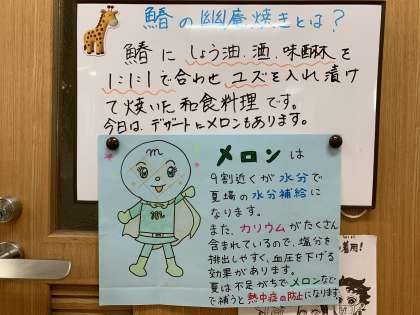 鰆の幽庵焼きとは?
鰆に しょう油、酒、味醂を
1:1:1で合わせ ユズを入れ漬け
て焼いた和食料理です。
今日は、デザートにメロンもあります。
メロン は
9割近くが 水分で
夏場の 水分補給に
なります。
また、カリウムがたくさん
含まれているので、塩分を
排出しやすく、血圧を下げる
効果があります。
夏は不足がちで メロンなど
で補うと 熱中症の防止になります
m
m
着用!